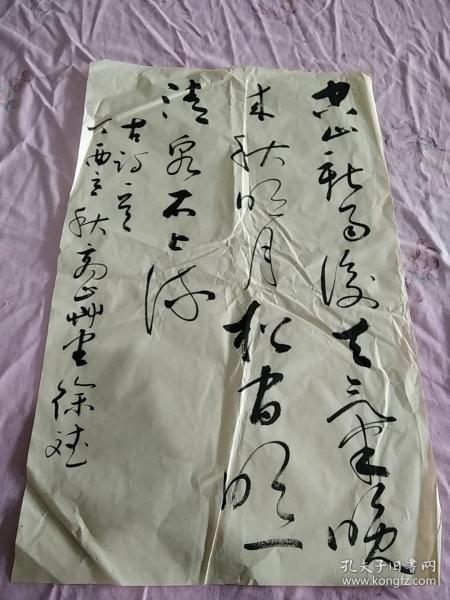 空山新雨後天气晚
来秋明月松间照一
清泉石上流
古诗一首
丁酉立秋高山草堂徐斌
孔夫子旧书网
www.kongfz.com